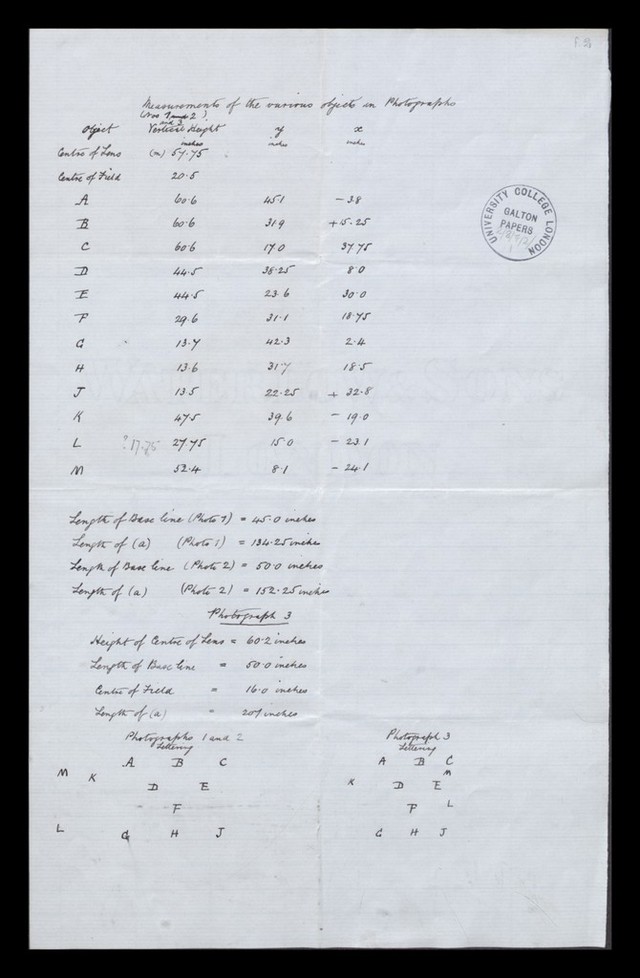 f. 2
Measurements of the various objects in Photographs
(Nos 1 and 2).
and 3
Object Vertical Height y x
inches inches inches
Centre of Lens (m) 57.75
Centre of Field 20.5
A 60.6 45.1 - 3.8
B 60.6 31.9 + 15.25
C 60.6 17.0 37.75
D 44.5 38.25 8.0
E 44.5 23.6 30.0
F 29.6 31.1 18.75
G 13.7 42.3 2.4
H 13.6 31.7 18.5
J 13.5 22.25 + 32.8
K 47.5 39.6 - 19.0
L ? 17.75 27.75 15.0 - 23.1
M 52.4 8.1 - 24.1
UNIVERSITY COLLEGE LONDON
GALTON
PAPERS
Length of Base line (Photo 1) = 45.0 inches
Length of (a) (Photo 1) = 134.25 inches
Length of Base line (Photo 2) = 50.0 inches
Length of (a) (Photo 2) = 152.25 inches
Photograph 3
Height of Centre of Lens = 60.2 inches
Length of Base line = 50.0 inches
Centre of Field = 16.0 inches
Length of (a) = 201 inches
Photographs 1 and 2
Lettering
A B C
M K
D E
F
L G H J
Photograph 3
Lettering
A B C
M
K D E
F L
G H J